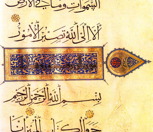 السَّمٰوَاتِ وَمَا فِي الْأَرْضِ
أَلَا إِلَى اللَّهِ تَصِيرُ الْأُمُورُ
بِسْمِ اللَّهِ الرَّحْمٰنِ الرَّحِيمِ
حم وَالْكِتَابِ الْمُبِينِ إِنَّا